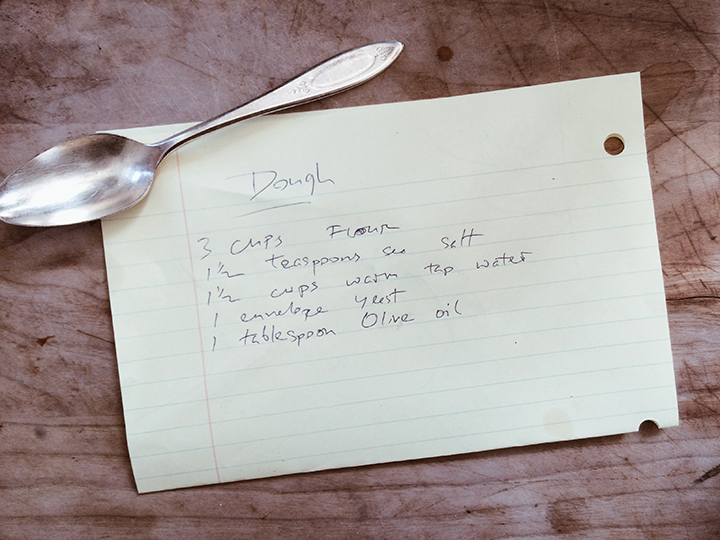 Dough
3 cups Flour
1 1/2 teaspoons sea salt
1 1/2 cups warm tap water
1 envelope yeast
1 tablespoon Olive oil